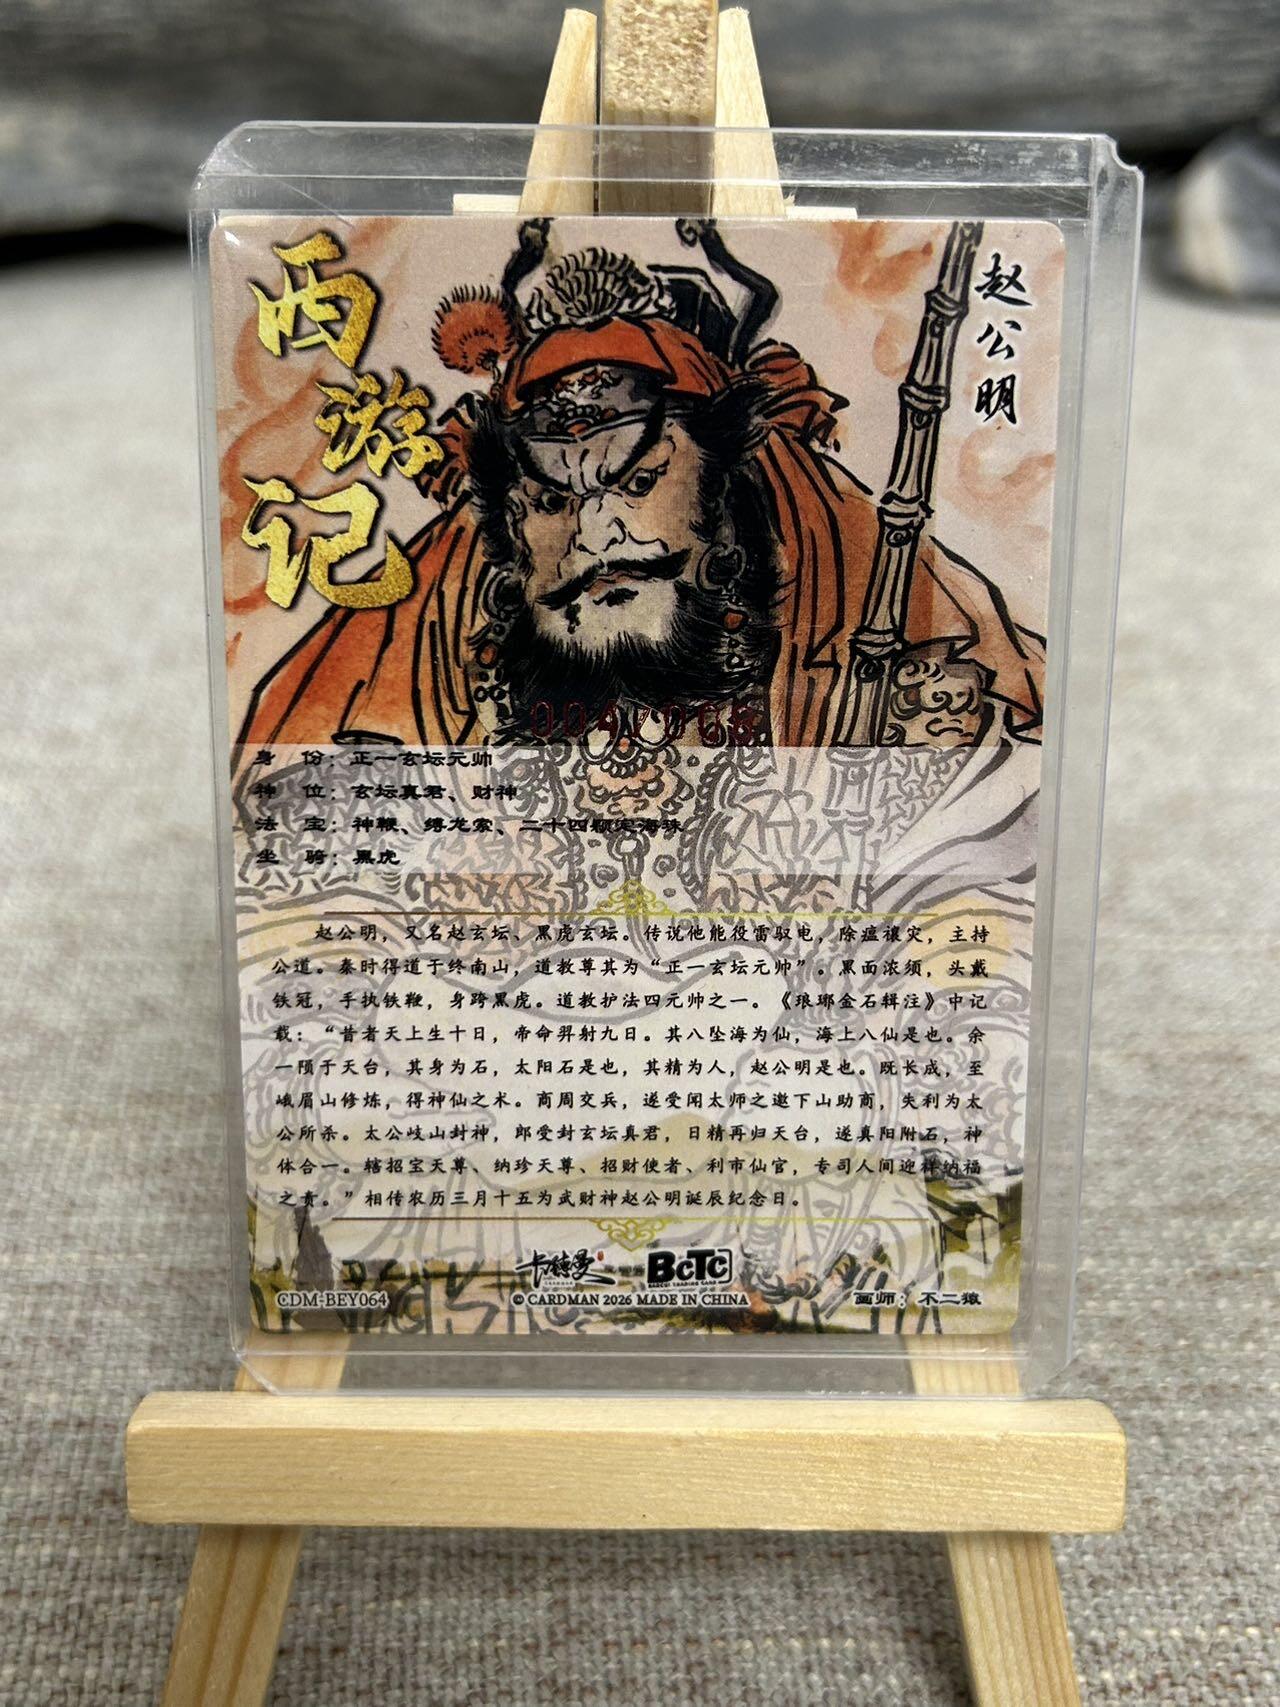 西游记
赵公明
004/008
身 份：正一玄坛元帅
神 位：玄坛真君、财神
法 宝：神鞭、缚龙索、二十四颗定海珠
坐 骑：黑虎
赵公明，又名赵玄坛、黑虎玄坛。传说他能役雷驭电，除瘟禳灾，主持
公道。秦时得道于终南山，道教尊其为“正一玄坛元帅”。黑面浓须，头戴
铁冠，手执铁鞭，身跨黑虎。道教护法四元帅之一。《琅琊金石辑注》中记
载：“昔者天上生十日，帝命羿射九日。其八坠海为仙，海上八仙是也。余
一陨于天台，其身为石，太阳石是也，其精为人，赵公明是也。既长成，至
峨眉山修炼，得神仙之术。商周交兵，遂受闻太师之邀下山助商，失利为太
公所杀。太公岐山封神，郎受封玄坛真君，日精再归天台，遂真阳附石，神
体合一。辖招宝天尊、纳珍天尊、招财使者、利市仙官，专司人间迎祥纳福
之责。”相传农历三月十五为武财神赵公明诞辰纪念日。
卡德曼 BCTC
CDM-BEY064
© CARDMAN 2026 MADE IN CHINA
画师：不二猿